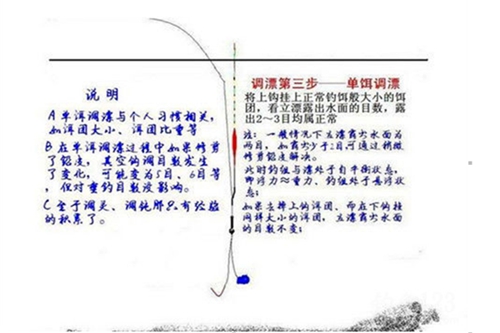 说明
A 单饵调漂与个人习惯相关,
如饵团大小、饵团比重等
B 在单饵调漂过程中如果修剪
了铅皮,其空钩调目数发生
了变化,可能变为5目、6目等
,但对垂钓目数没影响。
C 至于调灵、调钝那只有经验
的积累了。
调漂第三步——单饵调漂
将上钩挂上正常钓饵般大小的饵
团,看立漂露出水面的目数,露
出2~3目均属正常
注:一般情况下立漂露出水面为
两目,如露出少于2目可通过稍微
修剪铅皮解决。
此时钓组与漂处于自平衡状态,
即浮力≈重力、钓组处于悬浮状
态;
如果去掉上钩饵团、而在下钩挂
同样大小的饵团,立漂露出水面
的目数不变;